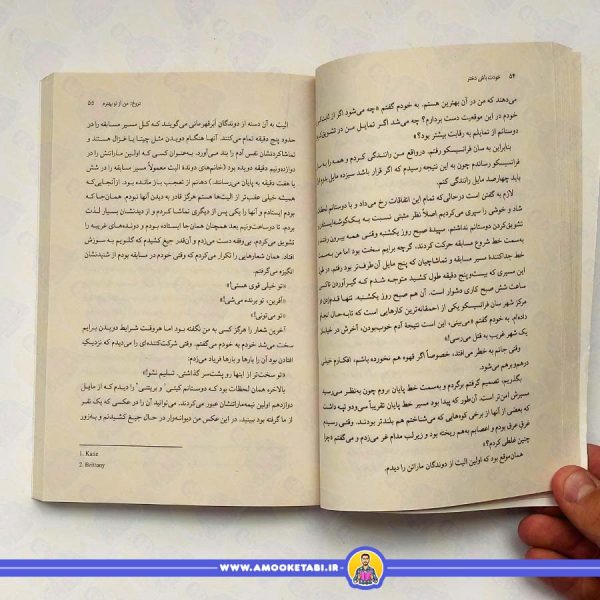 ۵۴ خودت باش دختر
می‌دهند که من در آن بهترین هستم. به خودم گفتم «چه می‌شود اگر از
خودم در این موقعیت دست بردارم؟ چه می‌شد اگر تمایل من در تشویق
دوستانم از تمایلم به رقابت بیشتر بود؟»
بنابراین به سان فرانسیسکو رفتم. درواقع من رانندگی کردم و همه را به سان
فرانسیسکو رساندم چون به این نتیجه رسیدم که اگر قرار باشد سیزده مایل بدوم
باید چهارصد مایل رانندگی کنم.
لازم به گفتن است درحالی‌که تمام این اتفاقات رخ می‌داد و با دوستانم لحظات
شاد و خوشی را سپری می‌کردیم اصلاً نظر مثبتی نسبت به یک‌گوشه‌ایستادن و
تشویق‌کردن دوستانم نداشتم. سپیدهٔ صبح روز یکشنبه وقتی همه بیرون رفتند و
به‌سمت خط شروع مسابقه حرکت کردند، گرچه برایم سخت بود اما من به‌سمت
خط جداکنندهٔ مسیر مسابقه و تماشاچیان که پنج مایل آن‌طرف‌تر بود رفتم. در
این مسیری که بیست‌وپنج دقیقه طول کشید متوجه شدم که گیرآوردن تاکسی
ساعت شش صبح کاری دشوار است. آن هم صبح روز یکشنبه. تنها قدم‌زدن در
مرکز شهر سان فرانسیسکو یکی از احمقانه‌ترین کارهایی است که تابه‌حال انجام
داده‌ام. به خودم گفتم «می‌بینی، این است نتیجهٔ آدم خوب‌بودن، آخرش در خیابان
یک شهر غریب به قتل می‌رسی.»
وقتی جانم به خطر می‌افتد، خصوصاً اگر قهوه هم نخورده باشم، افکارم خیلی
درهم‌وبرهم می‌شود.
بگذریم، تصمیم گرفتم برگردم و به‌سمت خط پایان بروم چون به‌نظر می‌رسید
مسیرش امن‌تر است. آن‌طور که پیدا بود مسیر خط پایان تقریباً سی‌ودو تپه داشت
که بعضی از آنها از برخی کوه‌هایی که می‌شناختم هم بلندتر بودند. وقتی رسیدم
غرق عرق بودم و اعصابم به‌هم ریخته بود و زیرلب مدام غر می‌زدم و می‌گفتم «چرا
چنین غلطی کردم؟»
همان‌موقع بود که اولین الیت از دوندگان ماراتن را دیدم.
دروغ: من از تو بهترم ۵۵
الیت به آن دسته از دوندگان ابرقهرمانی می‌گویند که کل مسیر مسابقه را در
حدود پنج دقیقه تمام می‌کنند. آنها هنگام دویدن مثل چیتا یا غزال هستند و
تماشاکردنشان نفس آدم را بند می‌آورد. به‌عنوان کسی که اولین ماراتنش را در
دوازده‌ونیم دقیقه دویده بود (خانم‌های دوندهٔ الیت معمولاً مسیر را در شش
یا هفت دقیقه به پایان می‌رسانند)، دهانم از تعجب باز مانده بود. ازآنجایی‌که
همیشه خیلی عقب‌تر از الیت‌ها هستم هرگز قادر به دیدن آنها نبودم. همان‌جا که
بودم ایستادم و آنها را یکی پس از دیگری تماشا کردم و از دیدنشان بسیار لذت
بردم. تا دوساعت‌ونیم بعد همچنان همان جا ایستاده بودم و دونده‌های غریبه را
تشویق می‌کردم. بی‌وقفه دست می‌زدم و آن‌قدر جیغ کشیدم که گلویم به سوزش
افتاد. همان شعارهایی را تکرار می‌کردم که وقتی خودم در مسابقه از شنیدنشان
انگیزه می‌گرفتم.
«تو خیلی قوی هستی!»
«آفرین، تو برنده می‌شی!»
«تو می‌تونی!»
آخرین شعار را هرگز کسی به من نگفته بود اما هروقت شرایط دویدن برایم
سخت می‌شد خودم به خودم می‌گفتم. وقتی شرکت‌کننده‌ای را می‌دیدم که نزدیک
افتادن بود آن را بارها و بارها فریاد می‌زدم:
«تو سخت‌تر از اینها رو پشت‌سر گذاشتی. تسلیم نشو!»
بالاخره همان لحظات بود که دوستانم کیتی۱ و بریتنی۲ را دیدم که از مایل
دوازدهم اولین نیمه‌ماراتنشان عبور می‌کردند. می‌توانید آن را در عکسی که یک نفر
از ما گرفته بود ببینید. در این عکس من دیوانه‌وار در حال جیغ کشیدنم و به‌زور
1. Katie
2. Brittany
WWW.AMOOKETABI.IR